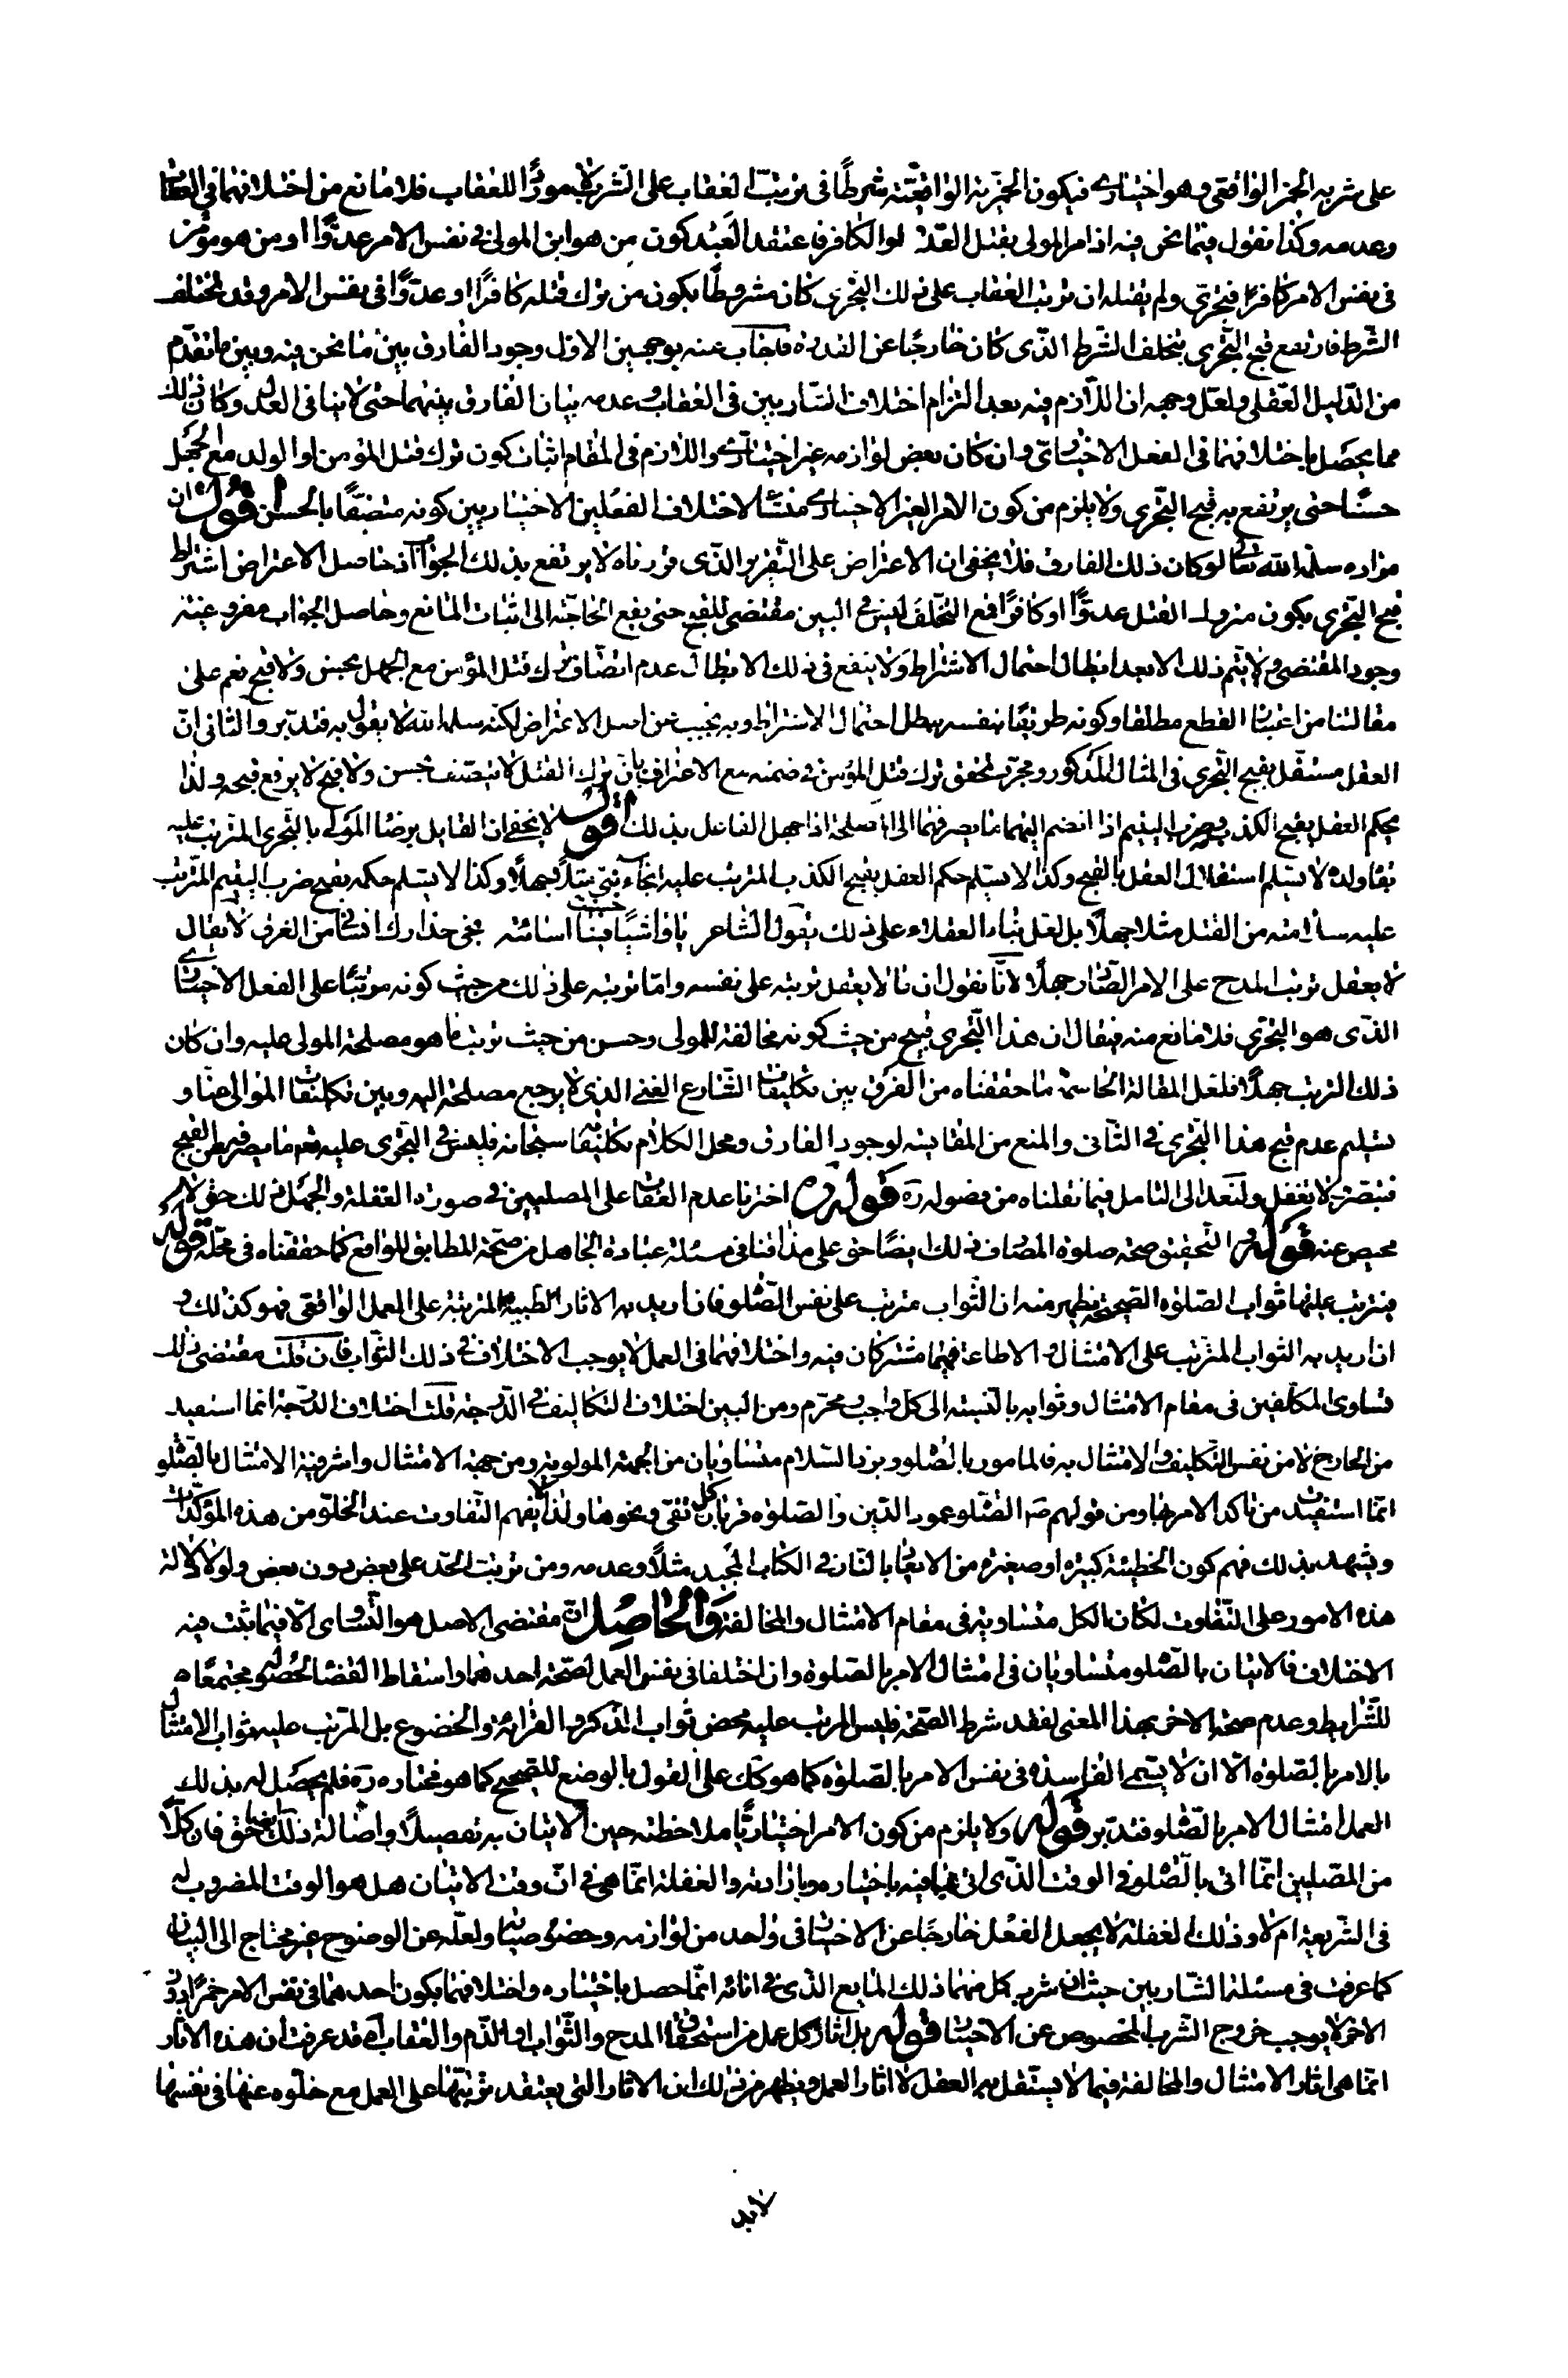 على شربه الخمر الواقعي وهو اختياري فيكون الخمرية الواقعية شرطا في ترتب العقاب على الشرب لا موردا للعقاب فلا مانع من اختلافهما في العقاب
وعدمه وكذا نقول فيما نحن فيه اذا امر المولى بقتل العدو الكافر فاعتقد العبد كون من هو ابن المولى في نفس الامر عدوا او من هو مؤمن
في نفس الامر كافرا فتجرى ولم يقتله ان ترتب العقاب على ذلك التجرى كان مشروطا بكون من ترك قتله كافرا او عدوا في نفس الامر وقد تخلف
الشرط فارتفع قبح التجرى بتخلف الشرط الذى كان خارجا عن القدرة فاجاب عنه بوجهين الاول وجود الفارق بين ما نحن فيه وبين ما تقدم
من الدليل العقلى ولعل وجهه ان اللازم فيه بعد التزام اختلاف الشاربين في العقاب وعدمه بيان الفارق بينهما حتى لا ينافى العدل وكان ذلك
مما يحصل باختلافهما في الفعل الاختيارى وان كان بعض لوازمه غير اختيارى واللازم في المقام اثبات كون ترك قتل المؤمن او الولد مع الجهل
حسنا حتى يرتفع به قبح التجرى ولا يلزم من كون الامر الغير الاختيارى منشأ لاختلاف الفعلين الاختياريين كونه متصفا بالحسن اقول ان
مراده سلمه الله تعالى لو كان ذلك الفارق فلا يخفى ان الاعتراض على التقرير الذى قررناه لا يرتفع بذلك الجواب اذ حاصل الاعتراض اشتراط
قبح التجرى بكون متروك القتل عدوا او كافرا فمع التخلف ليس في البين مقتضى للقبح حتى يقع الحاجة الى اثبات المانع وحاصل الجواب مفروغية
وجود المقتضى ولا يتم ذلك الا بعد ابطال احتمال الاشتراط ولا ينفع في ذلك الابطال عدم اتصاف ترك قتل المؤمن مع الجهل بحسن ولا قبح نعم على
مقالتنا من اعتبار القطع مطلقا وكونه طريقا بنفسه يبطل احتمال الاشتراط وبه نجيب عن اصل الاعتراض لكنه سلمه الله لا يقول به فتدبر والثانى ان
العقل مستقل بقبح التجرى في المثال المذكور ومجرد تحقق ترك قتل المؤمن في ضمنه مع الاعتراف بان ترك القتل لا يتصف بحسن ولا قبح لا يرفع قبحه ولذا
يحكم العقل بقبح الكذب وضرب اليتيم اذا انضم اليهما ما يصرفهما الى المصلحة اذا جهل الفاعل بذلك اقول لا يخفى ان القايل برضا المولى بالتجرى المترتب عليه
بقاء ولده لا يسلم استقلال العقل بالقبح وكذا لا يسلم حكم العقل بقبح الكذب المترتب عليه انجاء نبى مثلا جهلا وكذا لا يسلم حكمه بقبح ضرب اليتيم المترتب
عليه سلامته من القتل مثلا جهلا بل لعل بناء العقلاء على ذلك يقول الشاعر يا واشيا حسنت فينا اسائته نجى حذارك انسانى من الغرق لا يقال
لا يعقل ترتب المدح على الامر الصادر جهلا لانا نقول ان ما لا يعقل ترتبه على نفسه واما ترتبه على ذلك من حيث كونه مرتبا على الفعل الاختيارى
الذى هو التجرى فلا مانع منه فيقال ان هذا التجرى قبيح من حيث كونه مخالفة للمولى وحسن من حيث ترتب ما هو مصلحة المولى عليه وان كان
ذلك الترتب جهلا فلعل المقالة الحاسمة ما حققناه من الفرق بين تكليفات الشارع الغنى الذى لا يرجع مصلحة اليه وبين تكليفات الموالى منا و
تسليم عدم قبح هذا التجرى في الثانى والمنع من المقايسة لوجود الفارق ومحل الكلام تكليفاته سبحانه فليس في التجرى عليه تعم ما يصرفه عن القبح
فتبصر لا تغفل ولنعد الى التامل فيما نقلناه من فصوله ره قوله ره اخترنا عدم العقاب على المصليين في صورة الغفلة والجهل ذلك حق لا
محيص عنه قوله ره التحقيق صحة صلوة المصادف ذلك ايضا حق على مذاقنا في مسئلة عبادة الجاهل من صحة المطابق للواقع كما حققناه في محله قوله
يترتب عليها ثواب الصلوة الصحيحة يظهر منه ان الثواب مترتب على نفس الصلوة فان اريد به الاثار الطيبة المترتبة على العمل الواقعى فهو كذلك و
ان اريد به الثواب المترتب على الامتثال والاطاعة فهما مشتركان فيه واختلافهما في العمل لا يوجب الاختلاف في ذلك الثواب فان قلت مقتضى ذلك
تساوى المكلفين في مقام الامتثال وثوابه بالنسبة الى كل واجب ومحرم ومن البين اختلاف التكاليف في الدرجة قلت اختلاف الدرجة انما استفيد
من الخارج لا من نفس التكليف والامتثال به فالمامور بالصلوة وبرد السلام متساويان من جهة المولوية ومن جهة الامتثال واشرفية الامتثال بالصلوة
انما استفيدت من تاكد الامر بها ومن قولهم ص الصلوة عمود الدين والصلوة قربان كل تقى ونحوها ولذا لا يفهم التفاوت عند الخلو من هذه المؤكدات
ويشهد بذلك فهم كون الخطيئة كبيرة او صغيرة من الايعاد بالنار في الكتاب المجيد مثلا وعدمه ومن ترتب الحد على بعض دون بعض ولولا دلالة
هذه الامور على التفاوت لكان الكل متساوية في مقام الامتثال والمخالفة والحاصل ان مقتضى الاصل هو التساوى الا فيما ثبت فيه
الاختلاف فالاتيان بالصلوة متساويان في امتثال الامر بالصلوة وان اختلفا في نفس العمل لصحة احدهما واسقاط القضا لحصوله مجتمعا
للشرايط وعدم صحة الاخر بهذا المعنى لفقد شرط الصحة فليس المرتب عليه محض ثواب الذكر والقرائة والخضوع بل المترتب عليه ثواب الامتثال
بالامر بالصلوة الا ان لا يسمى الفاسدة في نفس الامر بالصلوة كما هو كك على القول بالوضع للصحيح كما هو مختاره ره فلم يحصل له بذلك
العمل امتثال الامر بالصلوة فتدبر قوله ولا يلزم من كون الامر اختياريا ملاحظته حين الاتيان به تفصيلا واصالة ذلك ايضا حق فان كلا
من المصليين انما اتى بالصلوة في الوقت الذى اتى بها فيه باختياره وبارادته والغفلة انما هى في ان وقت الاتيان هل هو الوقت المضروب له
في الشريعة ام لا وذلك الغفلة لا يجعل الفعل خارجا عن الاختيار في واحد من لوازمه وخصوصياته ولعله عن الوضوح غير محتاج الى البيان
كما عرفت في مسئلة الشاربين حيث ان شرب كل منهما ذلك المايع الذى في انائه انما حصل باختياره واختلافهما بكون احدهما في نفس الامر خمرا دون
الاخر لا يوجب خروج الشرب المخصوص عن الاختيار قوله بل اثار كل عمل من استحقاق المدح والثواب او الذم والعقاب اه قد عرفت ان هذه الاثار
انما هى اثار الامتثال والمخالفة فيما لا يستقل به العقل لا اثار العمل ويظهر من ذلك ان الاثار التى يعتقد ترتبها على العمل مع خلوه عنها في نفسها
لا بد